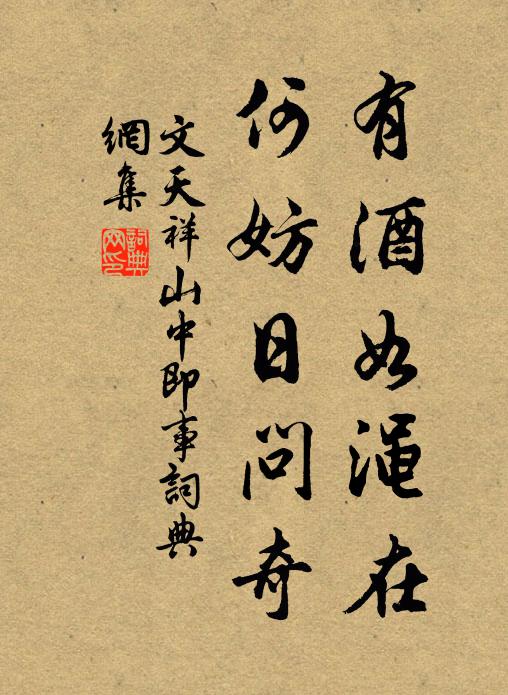 有酒如渑在
何妨日问奇
文天祥山中即事詞典
網集
詞典網印